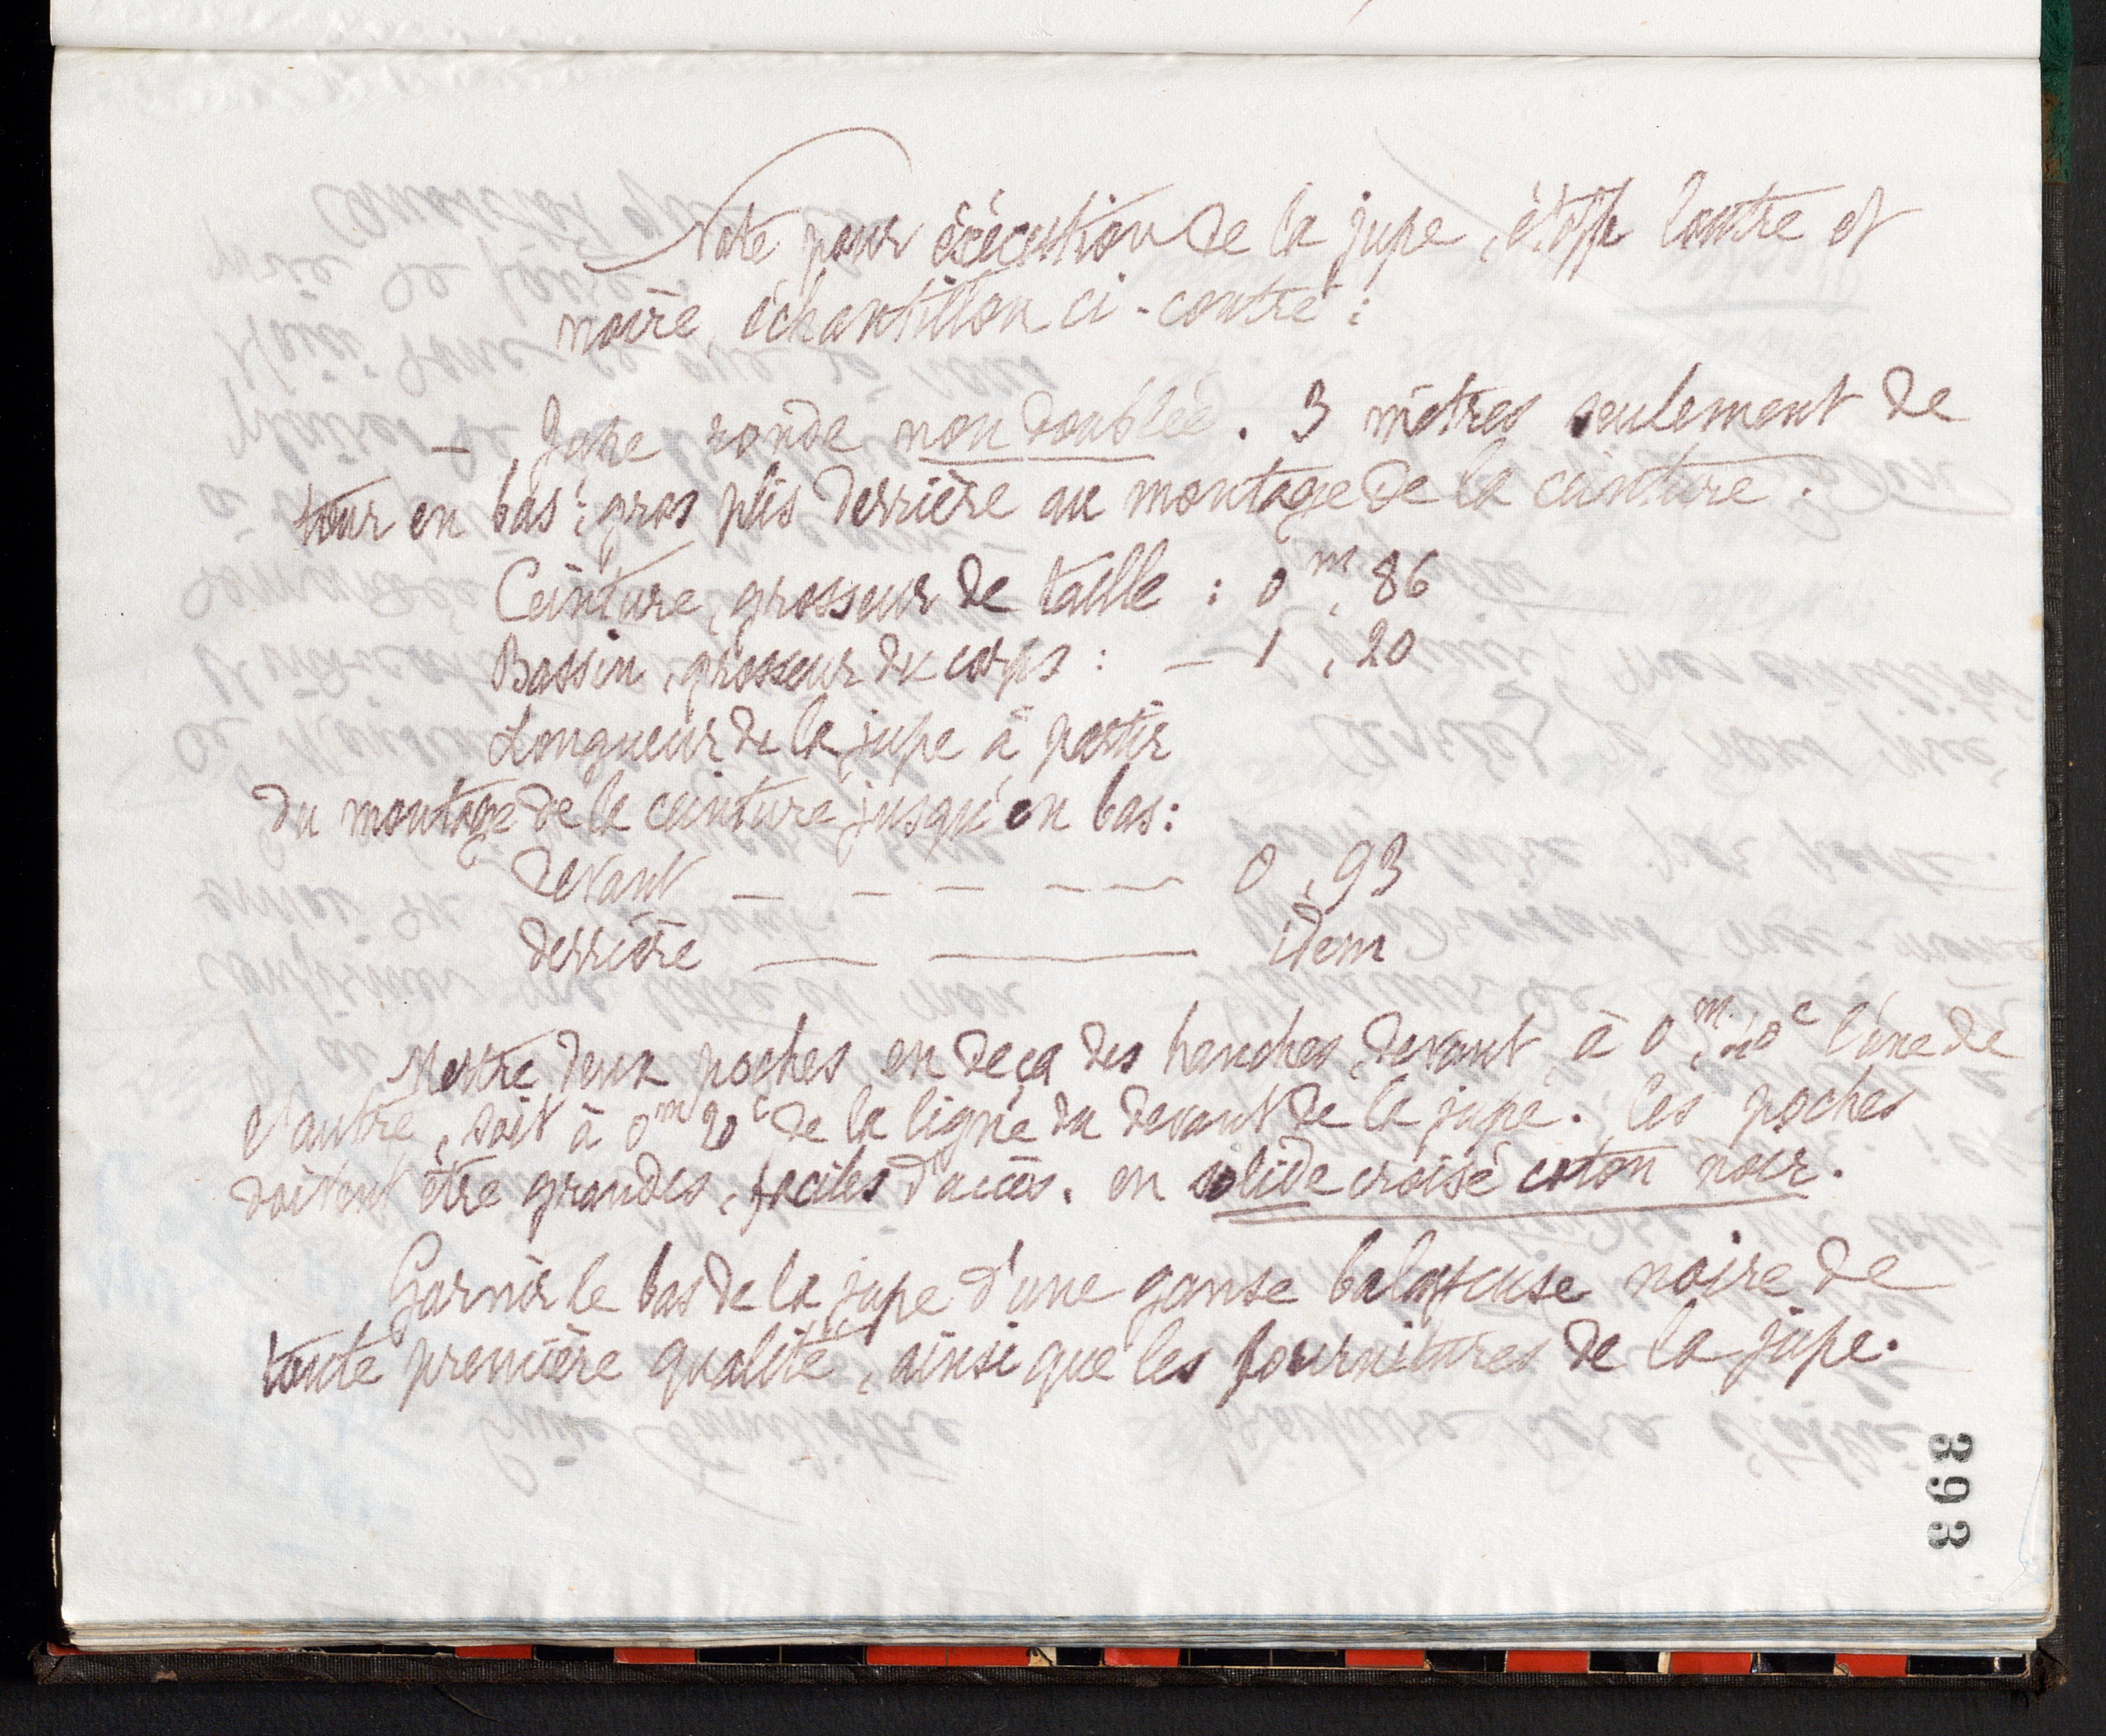 Note pour éxécution de la jupe, étoffe loutre et
noire, échantillon ci-contre :
— Jupe ronde non doublée. 3 mètres seulement de
tour en bas ; gros plis derrière au montage de la ceinture.
Ceinture, grosseur de taille : 0m, 86
Bassin, grosseur du corps : — 1 , 20
Longueur de la jupe à partir
du montage de la ceinture jusqu'en bas :
devant — — — — — 0 , 93
derrière — — idem
Mettre deux poches en deça des hanches, devant, à 0m,40c l'une de
l'autre, soit à 0m 20c de la ligne du devant de la jupe. les poches
doivent être grandes, faciles d'accès. en solide croisé coton noir.
Garnir le bas de la jupe d'une ganse balayeuse noire de
toute première qualité, ainsi que les fournitures de la jupe.
393